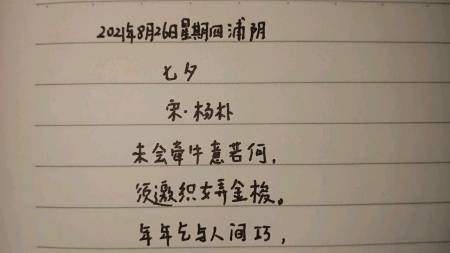 2021年8月26日星期四浦阴
七夕
宋·杨朴
未会牵牛意若何,
须邀织女弄金梭。
年年乞与人间巧,